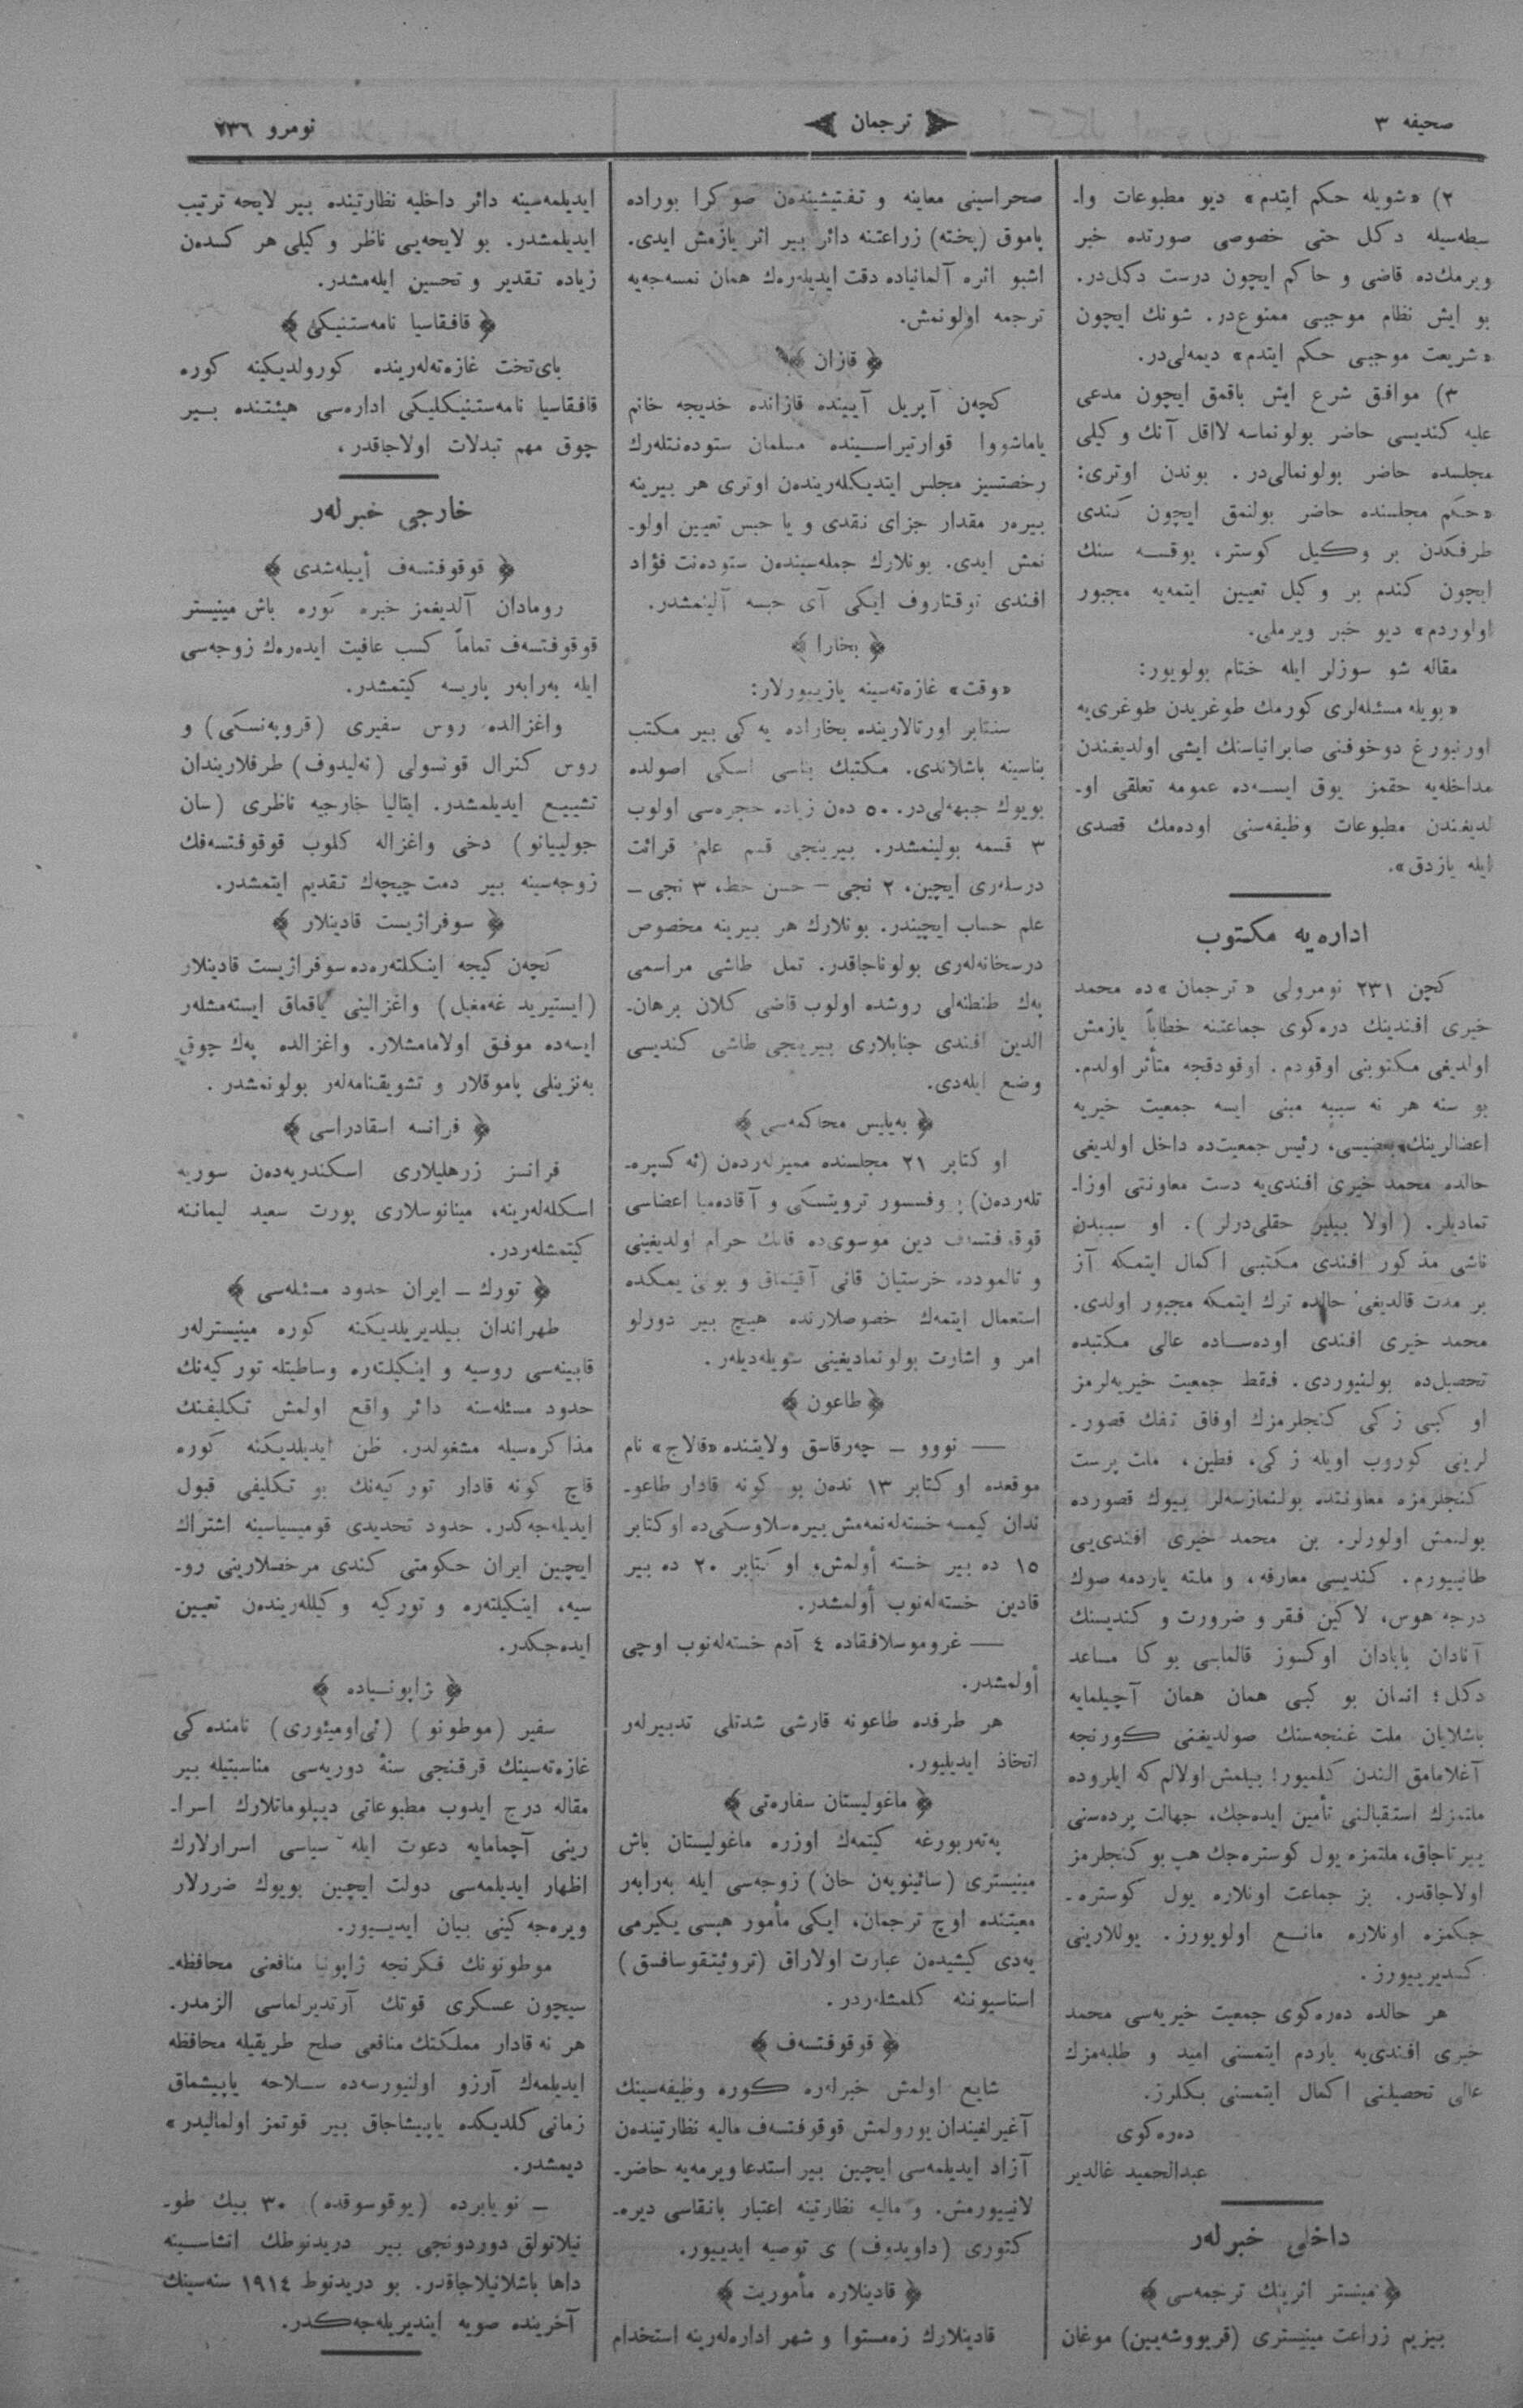 صحیفه ۳
ترجمان
نومرو ۲۳٦
۲) «شویله حکم ایتدم» دیو مطبوعات وا-
سطه‌سیله دکل حتی خصوصی صورتده خبر
ویرمك‌ده قاضی و حاکم ایچون درست دکل‌در.
بو ایش نظام موجبی ممنوع‌در. شونك ایچون
«شریعت موجبی حکم ایتدم» دیمه‌لی‌در.
۳) موافق شرع ایش باقمق ایچون مدعی
علیه کندیسی حاضر بولونماسه لااقل آنك وکیلی
مجلسده حاضر بولونمالی‌در. بوندن اوتری:
«حکم مجلسنده حاضر بولنمق ایچون کندی
طرفکدن بر وکیل کوستر، یوقسه سنك
ایچون کندم بر وکیل تعیین ایتمه‌یه مجبور
اولوردم» دیو خبر ویرملی.
مقاله شو سوزلر ایله ختام بولویور:
«بویله مسئله‌لری کورمك طوغریدن طوغری‌یه
اورنبورغ دوخوفنی صابرانیاسنك ایشی اولدیغندن
مداخله‌یه حقمز یوق ایسه‌ده عمومه تعلقی او-
لدیغندن مطبوعات وظیفه‌سنی اوده‌مك قصدی
ایله یازدق».
اداره‌یه مکتوب
کچن ۲۳۱ نومرولی «ترجمان»ده محمد
خیری افندینك دره‌کوی جماعتنه خطاباً یازمش
اولدیغی مکتوبنی اوقودم. اوقودقجه متأثر اولدم.
بو سنه هر نه سببه مبنی ایسه جمعیت خیریه
اعضالرینك بعضیسی، رئیس جمعیت‌ده داخل اولدیغی
حالده محمد خیری افندی‌یه دست معاونتی اوزا-
تمادیلر. (اولا بیلیر حقلی‌درلر). او سببدن
ناشی مذکور افندی مکتبی اکمال ایتمکه آز
بر مدت قالدیغی حالده ترك ایتمکه مجبور اولدی.
محمد خیری افندی اوده‌ساده عالی مکتبده
تحصیل‌ده بولنیوردی. فقط جمعیت خیریه‌لرمز
او کبی زکی کنجلرمزك اوفاق تفك قصور-
لرینی کوروب اویله زکی، فطین، ملت پرست
کنجلرمزه معاونتده بولنمازسه‌لر بیوك قصورده
بولنمش اولورلر. بن محمد خیری افندی‌یی
طانییورم. کندیسی معارفه، و ملته یاردمه صوك
درجه هوس، لاکین فقر و ضرورت و کندیسنك
آنادان بابادان اوکسوز قالماسی بوکا مساعد
دکل؛ انسان بو کبی همان همان آچیلمایه
باشلایان ملت غنجه‌سنك صولدیغنی کورنجه
آغلامامق الندن کلمیور! بیلمش اولالم که ایلروده
ملتمزك استقبالنی تأمین ایده‌جك، جهالت پرده‌سنی
ییرتاجاق، ملتمزه یول کوستره‌جك هپ بو کنجلرمز
اولاجاقدر. بز جماعت اونلاره یول کوستره-
جکمزه اونلاره مانع اولویورز. یوللارینی
کسدیرییورز.
هر حالده دەرەکوی جمعیت خیریه‌سی محمد
خیری افندی‌یه یاردم ایتمسنی امید و طلبه‌مزك
عالی تحصیلنی اکمال ایتمسنی بکلرز.
دەرەکوی
عبدالحمید غالدیر
داخلی خبرلەر
﴿ مینستر اثرینك ترجمه‌سی ﴾
بیزیم زراعت مینیستری (قریووشەیین) موغان
صحراسینی معاینه و تفتیشیندەن صوکرا بوراده
پاموق (پخته) زراعتنه دائر بیر اثر یازمش ایدی.
اشبو اثره آلمانیاده دقت ایدیلەرەك همان نمسه‌جه‌یه
ترجمه اولونمش.
﴿ قازان ﴾
کچەن آپریل آیینده قازانده خدیجه خانم
یاماشووا قوارتیراسینده مسلمان ستودەنتلەرك
رخصتسیز مجلس ایتدیکلەریندەن اوتری هر بیرینه
بیرەر مقدار جزای نقدی و یا حبس تعیین اولو-
نمش ایدی. بونلارك جمله‌سیندەن ستودەنت فؤاد
افندی توقتاروف ایکی آی حبسه آلینمشدر.
﴿ بخارا ﴾
«وقت» غازەتەسینه یازییورلار:
سنتابر اورتالارینده بخاراده یەکی بیر مکتب
بناسینه باشلاندی. مکتبك بناسی اسکی اصولده
بویوك جبهه‌لی‌در. ۵۰ دەن زیاده حجره‌سی اولوب
۳ قسمه بولینمشدر. بیرینجی قسم علم قرائت
درسلەری ایچین، ۲ نجی – حسن خط، ۳ نجی –
علم حساب ایچیندر. بونلارك هر بیرینه مخصوص
درسخانه‌لەری بولوناجاقدر. تمل طاشی مراسمی
پەك طنطنه‌لی روشده اولوب قاضی کلان برهان-
الدین افندی جنابلاری بیرینجی طاشی کندیسی
وضع ایلەدی.
﴿ بەیلیس محاکمه‌سی ﴾
اوکتابر ۲۱ مجلسنده ممیزلەردەن (ئەکسپرە-
تلەردەن) پروفسسور ترویتسکی و آقادەمیا اعضاسی
قوقوفتسەف دین موسوی‌ده قانك حرام اولدیغینی
و تالمودده خرستیان قانی آقیتماق و بونی یمکده
استعمال ایتمەك خصوصلارنده هیچ بیر دورلو
امر و اشارت بولونمادیغینی سویلەدیلەر.
﴿ طاعون ﴾
— نووو – چەرقاسق ولایتنده «قالاچ» نام
موقعده اوکتابر ۱۳ ندەن بو کونه قادار طاعو-
ندان کیمسه خسته‌لەنمەمش بیرەسلاوسکی‌ده اوکتابر
۱۵ ده بیر خسته أولمش، اوکتابر ۲۰ ده بیر
قادین خسته‌لەنوب أولمشدر.
— غروموسلافقاده ٤ آدم خسته‌لەنوب اوچی
أولمشدر.
هر طرفده طاعونه قارشی شدتلی تدبیرلەر
اتخاذ ایدیلیور.
﴿ ماغولیستان سفارەتی ﴾
پەتەربورغه کیتمەك اوزره ماغولیستان باش
مینیستری (سائینویەن خان) زوجه‌سی ایله بەرابەر
معیتنده اوچ ترجمان، ایکی مأمور هپسی یکیرمی
یەدی کیشیدەن عبارت اولاراق (تروئیتقوسافسق)
استاسیوننه کلمشلەردر.
﴿ قوقوفتسەف ﴾
شایع اولمش خبرلەره کوره وظیفه‌سینك
آغیرلغیندان یورولمش قوقوفتسەف مالیه نظارتیندەن
آزاد ایدیلمه‌سی ایچین بیر استدعا ویرمه‌یه حاضر-
لانییورمش. و مالیه نظارتینه اعتبار بانقاسی دیرە-
کتوری (داویدوف) ی توصیه ایدییور.
﴿ قادینلاره مأموریت ﴾
قادینلارك زەمستوا و شهر ادارەلەرینه استخدام
ایدیلمه‌سینه دائر داخلیه نظارتینده بیر لایحه ترتیب
ایدیلمشدر. بو لایحه‌یی ناظر وکیلی هر کسدەن
زیاده تقدیر و تحسین ایلەمشدر.
﴿ قافقاسیا نامەستنیکی ﴾
پای‌تخت غازەتەلەرینده کورولدیکینه کوره
قافقاسیا نامەستنیکلیکی اداره‌سی هیئتنده بیر
چوق مهم تبدلات اولاجاقدر،
خارجی خبرلەر
﴿ قوقوفتسەف أییلەشدی ﴾
رومادان آلدیغمز خبره کوره باش مینیستر
قوقوفتسەف تماماً کسب عافیت ایدەرەك زوجه‌سی
ایله بەرابەر پاریسه کیتمشدر.
واغزالده روس سفیری (قروپەنسکی) و
روس کنرال قونسولی (نەلیدوف) طرفلاریندان
تشییع ایدیلمشدر. ایتالیا خارجیه ناظری (سان
جولییانو) دخی واغزاله کلوب قوقوفتسەفك
زوجه‌سینه بیر دمت چیچەك تقدیم ایتمشدر.
﴿ سوفراژیست قادینلار ﴾
کچەن کیجه اینکلتەرەده سوفراژیست قادینلار
(ایستیرید غەمغیل) واغزالینی یاقماق ایستەمشلەر
ایسەده موفق اولامامشلار. واغزالده پەك چوق
بەنزینلی پاموقلار و تشویقنامەلەر بولونمشدر.
﴿ فرانسه اسقادراسی ﴾
فرانسز زرهلیلاری اسکندریەدەن سوریه
اسکله‌لەرینه، مینانوسلاری پورت سعید لیماننه
کیتمشلەردر.
﴿ تورك – ایران حدود مسئله‌سی ﴾
طهراندان بیلدیریلدیکنه کوره مینیسترلەر
قابینه‌سی روسیه و اینکیلتەره وساطتیله تورکیەنك
حدود مسئله‌سنه دائر واقع اولمش تکلیفنك
مذاکره‌سیله مشغولدر. ظن ایدیلدیکنه کوره
قاچ کونه قادار تورکیەنك بو تکلیفی قبول
ایدیلەجەکدر. حدود تحدیدی قومیسیاسینه اشتراك
ایچین ایران حکومتی کندی مرخصلارینی رو-
سیه، اینکیلتەره و تورکیه وکیللەریندەن تعیین
ایدەجکدر.
﴿ ژاپونیاده ﴾
سفیر (موطونو) (ئی‌اومیئوری) نامنده‌کی
غازەتەسینك قرقنجی سنهٔ دوریه‌سی مناسبتیله بیر
مقاله درج ایدوب مطبوعاتی دیپلوماتلارك اسرا-
رینی آچمامایه دعوت ایله سیاسی اسرارلارك
اظهار ایدیلمه‌سی دولت ایچین بویوك ضررلار
ویرەجەکینی بیان ایدییور.
موطونونك فکرنجه ژاپونیا منافعنی محافظه-
سیچون عسکری قوتك آرتدیرلماسی الزمدر.
هر نه قادار مملکتك منافعی صلح طریقیله محافظه
ایدیلمەك آرزو اولنیورسه‌ده سلاحه یاپیشماق
زمانی کلدیکده یاپیشاجاق بیر قوتمز اولمالیدر»
دیمشدر.
– نویابرده (یوقوسوقده) ۳۰ بیك طو-
نیلاتولق دوردونجی بیر دریدنوطك انشاسینه
داها باشلانیلاجاقدر. بو دریدنوط ۱۹۱٤ سنه‌سینك
آخرینده صویه ایندیریلەجەکدر.